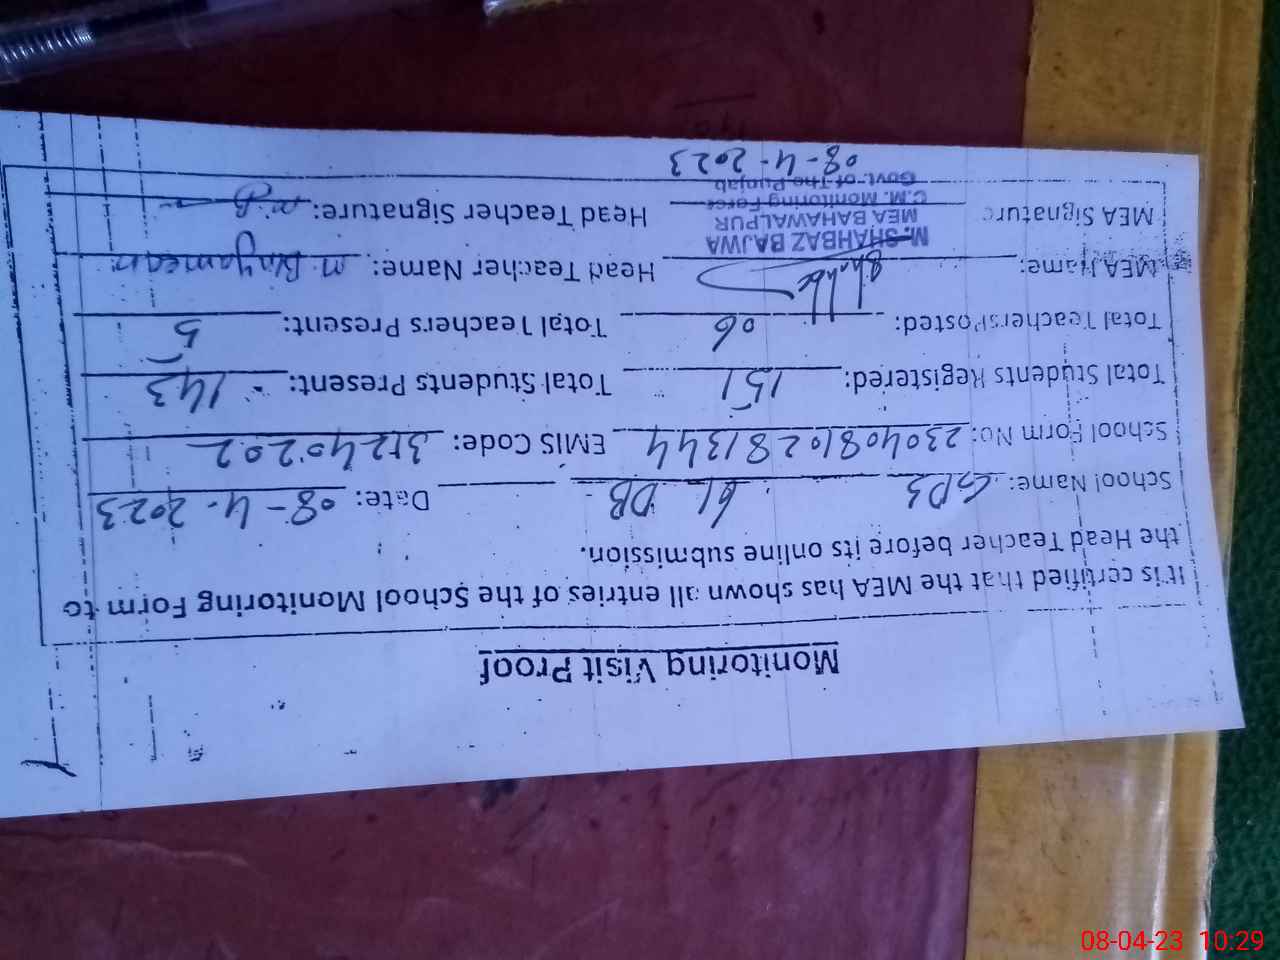 Monitoring Visit Proof
It is certified that the MEA has shown all entries of the School Monitoring Form to
the Head Teacher before its online submission.
School Name: GPS 61 DB Date: 08-4-2023
School Form No: 23040810281344 EMIS Code: 31240202
Total Students Registered: 151 Total Students Present: 143
Total Teachers Posted: 06 Total Teachers Present: 5
MEA Name: Head Teacher Name: M. Binyameen
M. SHAHBAZ BAJWA
MEA BAHAWALPUR
MEA Signature Head Teacher Signature: M.B
C.M. Monitoring Force
Govt. of The Punjab
08-4-2023
08-04-23 10:29